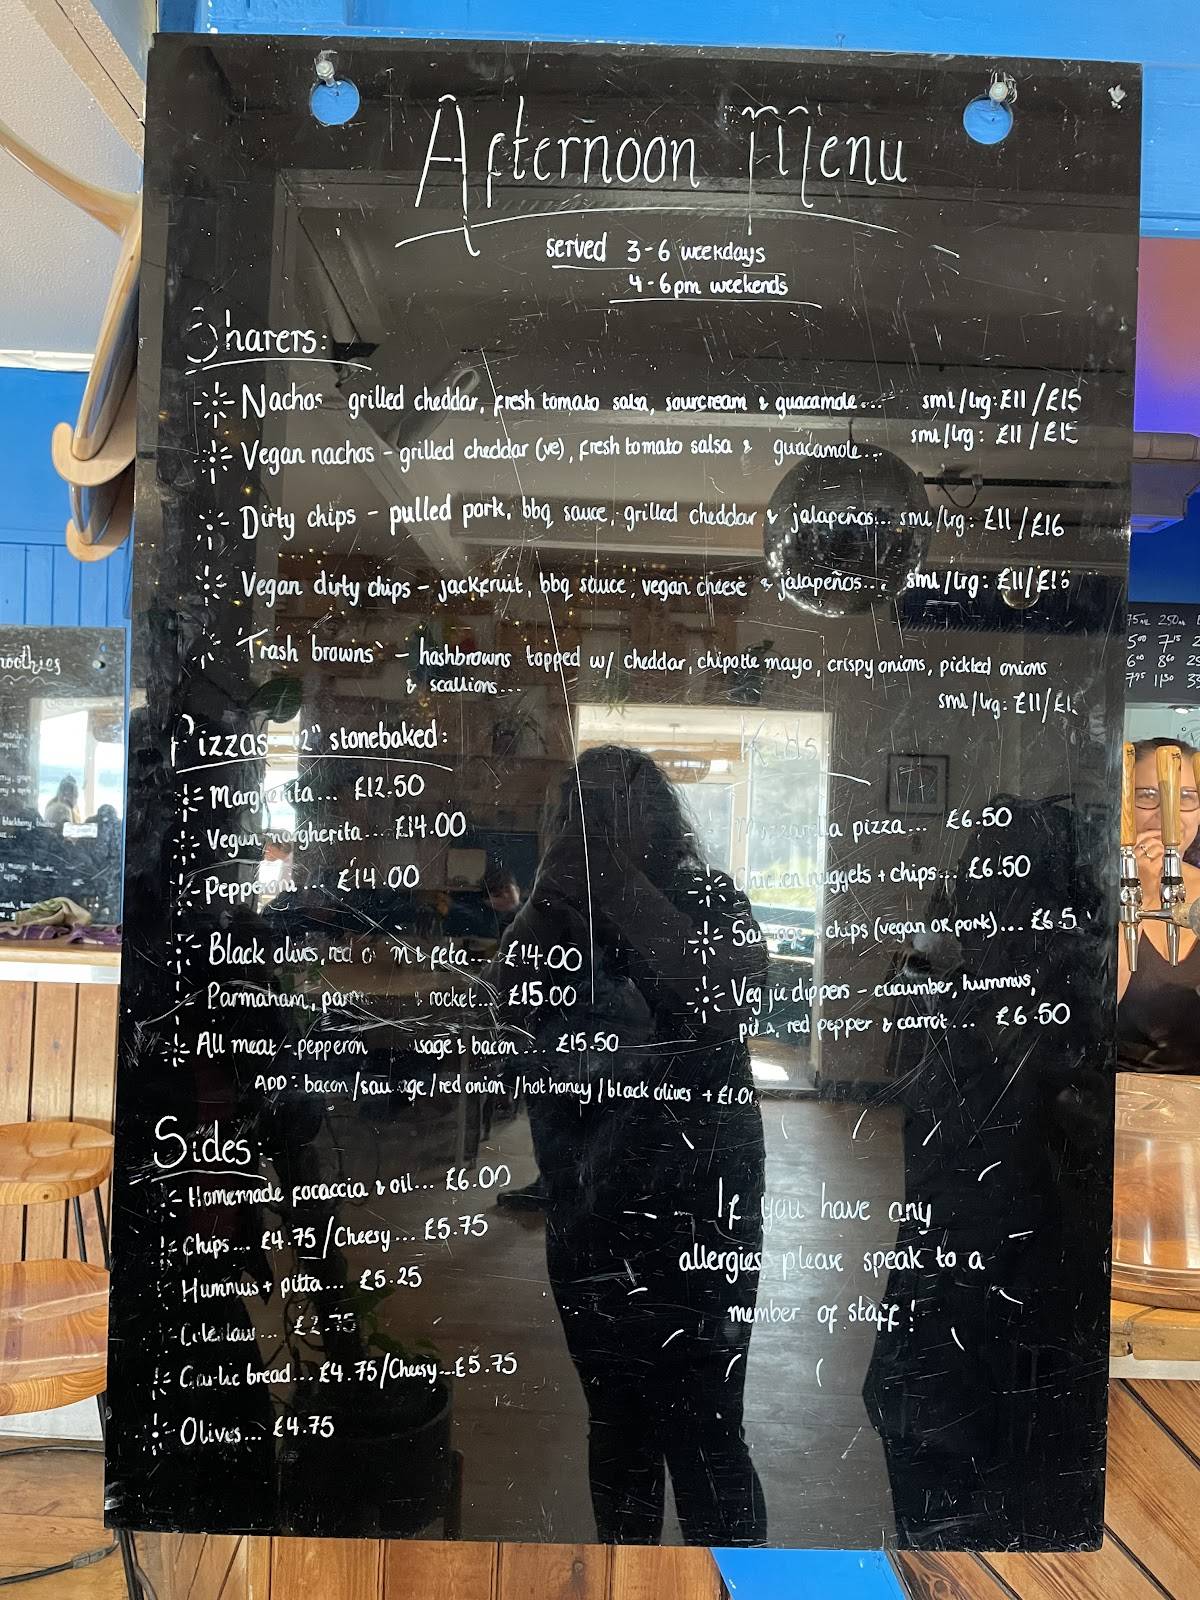 Afternoon Menu
served 3-6 weekdays
4-6pm weekends
Sharers:
Nachos grilled cheddar, fresh tomato salsa, sourcream & guacamole... sml/lrg: £11/£15
Vegan nachos - grilled cheddar (ve), fresh tomato salsa & guacamole... sml/lrg: £11/£15
Dirty chips - pulled pork, bbq sauce, grilled cheddar & jalapeños... sml/lrg: £11/£16
Vegan dirty chips - jackfruit, bbq sauce, vegan cheese & jalapeños... sml/lrg: £11/£16
'Trash browns' - hashbrowns topped w/ cheddar, chipotle mayo, crispy onions, pickled onions
& scallions...
sml/lrg: £11/
Pizzas 12" stonebaked:
Margherita... £12.50
Vegan margherita... £14.00
Pepperoni... £14.00
Black olives, red feta... £14.00
Parmaham, rocket... £15.00
All meat - pepperoni & bacon... £15.50
ADD: bacon/sausage/red onion/hot honey/black olives + £1.00
Kids
Mozzarella pizza... £6.50
Chicken nuggets + chips... £6.50
Sausage + chips (vegan or pork)... £6.5
Veggie dippers - cucumber, hummus,
pitta, red pepper & carrot... £6.50
Sides:
Homemade focaccia & oil... £6.00
Chips... £4.75/Cheesy... £5.75
Hummus + pitta... £5.25
Coleslaw... £2.75
Garlic bread... £4.75/Cheesy... £5.75
Olives... £4.75
If you have any
allergies please speak to a
member of staff!